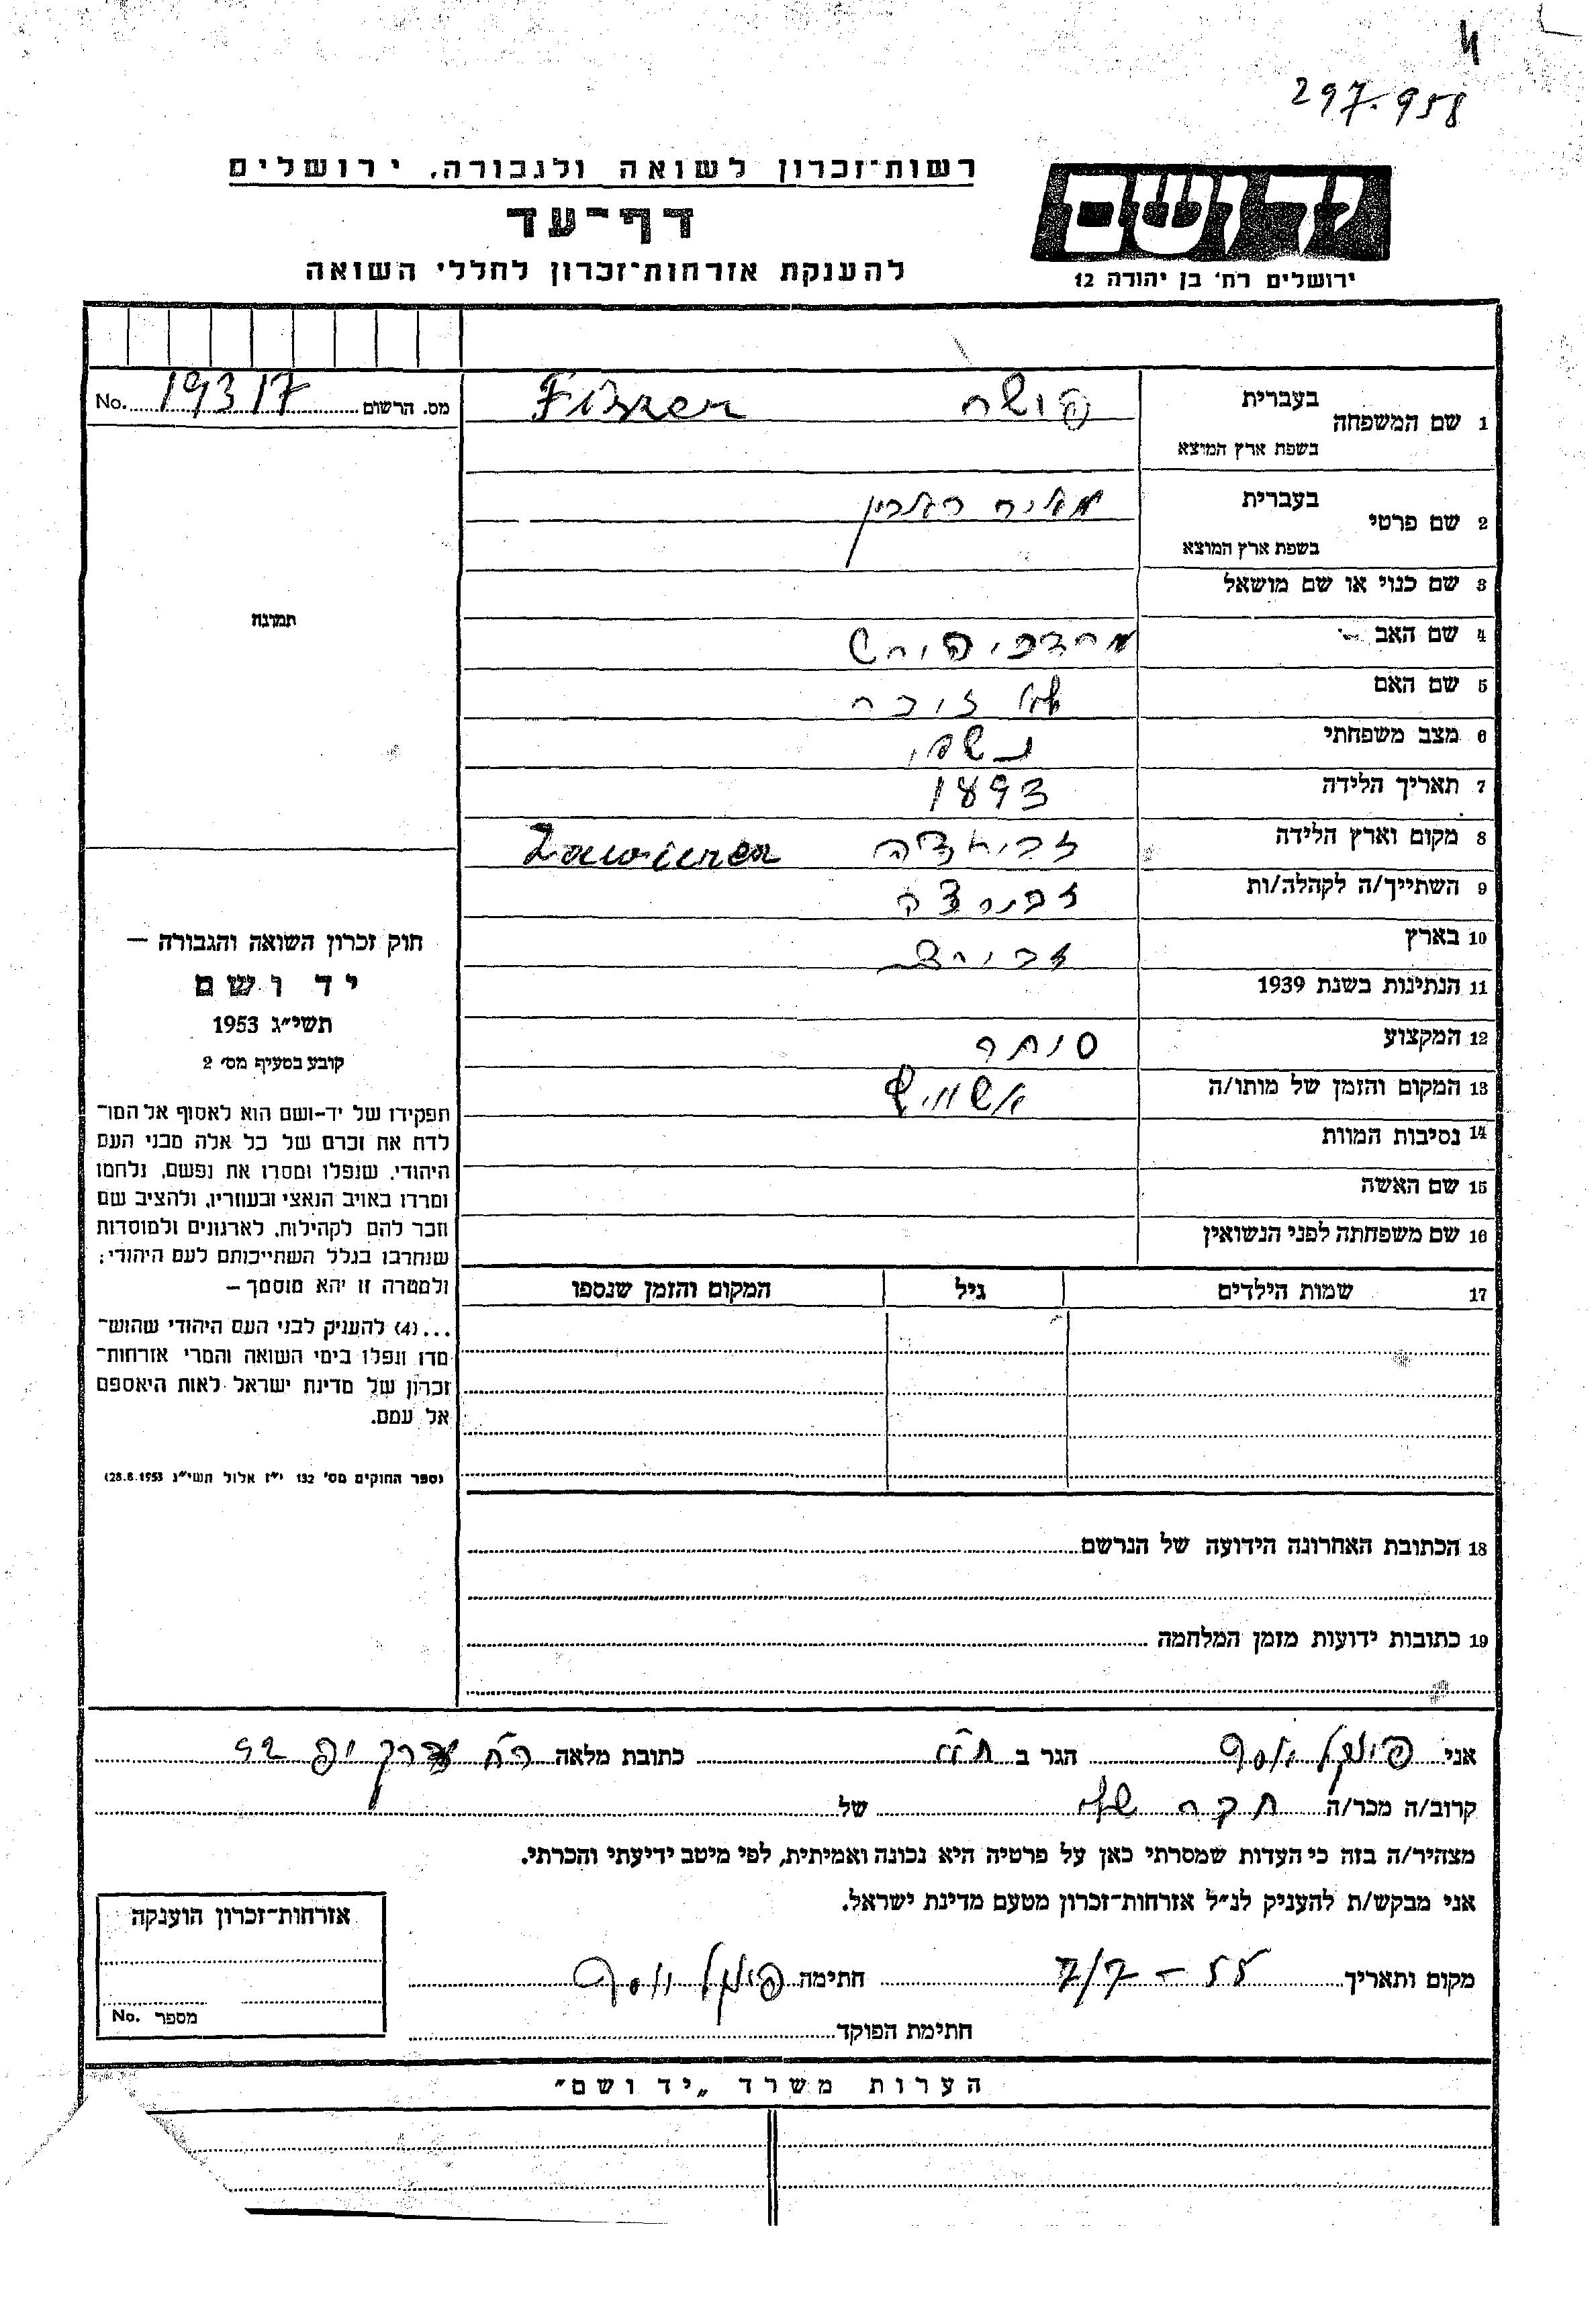 297.958
רשות־זכרון לשואה ולגבורה, ירושלים
דף־עד
להענקת אזרחות־זכרון לחללי השואה
יד ושם
ירושלים רח׳ בן יהודה 12
מס. הרשום 19317 No.
1 שם המשפחה
בעברית
בשפת ארץ המוצא
Fiszer
2 שם פרטי
בעברית
בשפת ארץ המוצא
מאיר
3 שם כנוי או שם מושאל
4 שם האב
מרדכי הירש
5 שם האם
6 מצב משפחתי
נשוי
7 תאריך הלידה
1893
8 מקום וארץ הלידה
Zawierce
9 השתייך/ה לקהלה/ות
10 בארץ
11 הנתינות בשנת 1939
12 המקצוע
סוחר
13 המקום והזמן של מותו/ה
14 נסיבות המוות
15 שם האשה
16 שם משפחתה לפני הנשואין
17 שמות הילדים גיל המקום והזמן שנספו
18 הכתובת האחרונה הידועה של הנרשם
19 כתובות ידועות מזמן המלחמה
תמונה
חוק זכרון השואה והגבורה –
יד ושם
תשי״ג 1953
קובע בסעיף מס׳ 2
תפקידו של יד-ושם הוא לאסוף אל המו־
לדת את זכרם של כל אלה מבני העם
היהודי, שנפלו ומסרו את נפשם, נלחמו
ומרדו באויב הנאצי ובעוזריו, ולהציב שם
וזכר להם לקהילות, לארגונים ולמוסדות
שנחרבו בגלל השתייכותם לעם היהודי;
ולמטרה זו יהא מוסמך –
...(4) להעניק לבני העם היהודי שהוש־
מדו ונפלו בימי השואה והמרי אזרחות־
זכרון של מדינת ישראל לאות היאספם
אל עמם.
(ספר החוקים מס׳ 132 י״ז אלול תשי״ג 28.8.1953)
אני יוסף הגר ב ת״א כתובת מלאה
קרוב/ה מכר/ה של
מצהיר/ה בזה כי העדות שמסרתי כאן על פרטיה היא נכונה ואמיתית, לפי מיטב ידיעתי והכרתי.
אני מבקש/ת להעניק לנ״ל אזרחות־זכרון מטעם מדינת ישראל.
מקום ותאריך 7/7 – 55 חתימה יוסף
חתימת הפוקד
אזרחות־זכרון הוענקה
מספר No.
הערות משרד „יד ושם״